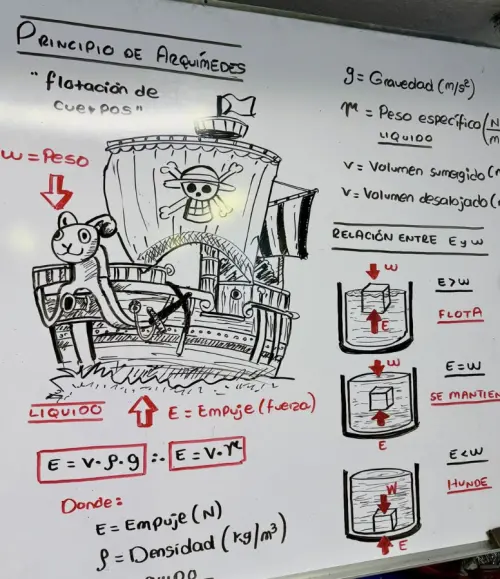 PRINCIPIO DE ARQUÍMEDES
"flotación de
cuerpos"
W = Peso
LIQUIDO
E = Empuje (fuerza)
E = V · ρ · g ∴ E = V · γ
Donde:
E = Empuje (N)
ρ = Densidad (kg/m³)
g = Gravedad (m/s²)
γ = Peso específico (N/m
LIQUIDO
V = Volumen sumergido (
V = Volumen desalojado (
RELACIÓN ENTRE E y W
W
E > W
E
FLOTA
W
E = W
SE MANTIEN
E
E < W
W
HUNDE
E